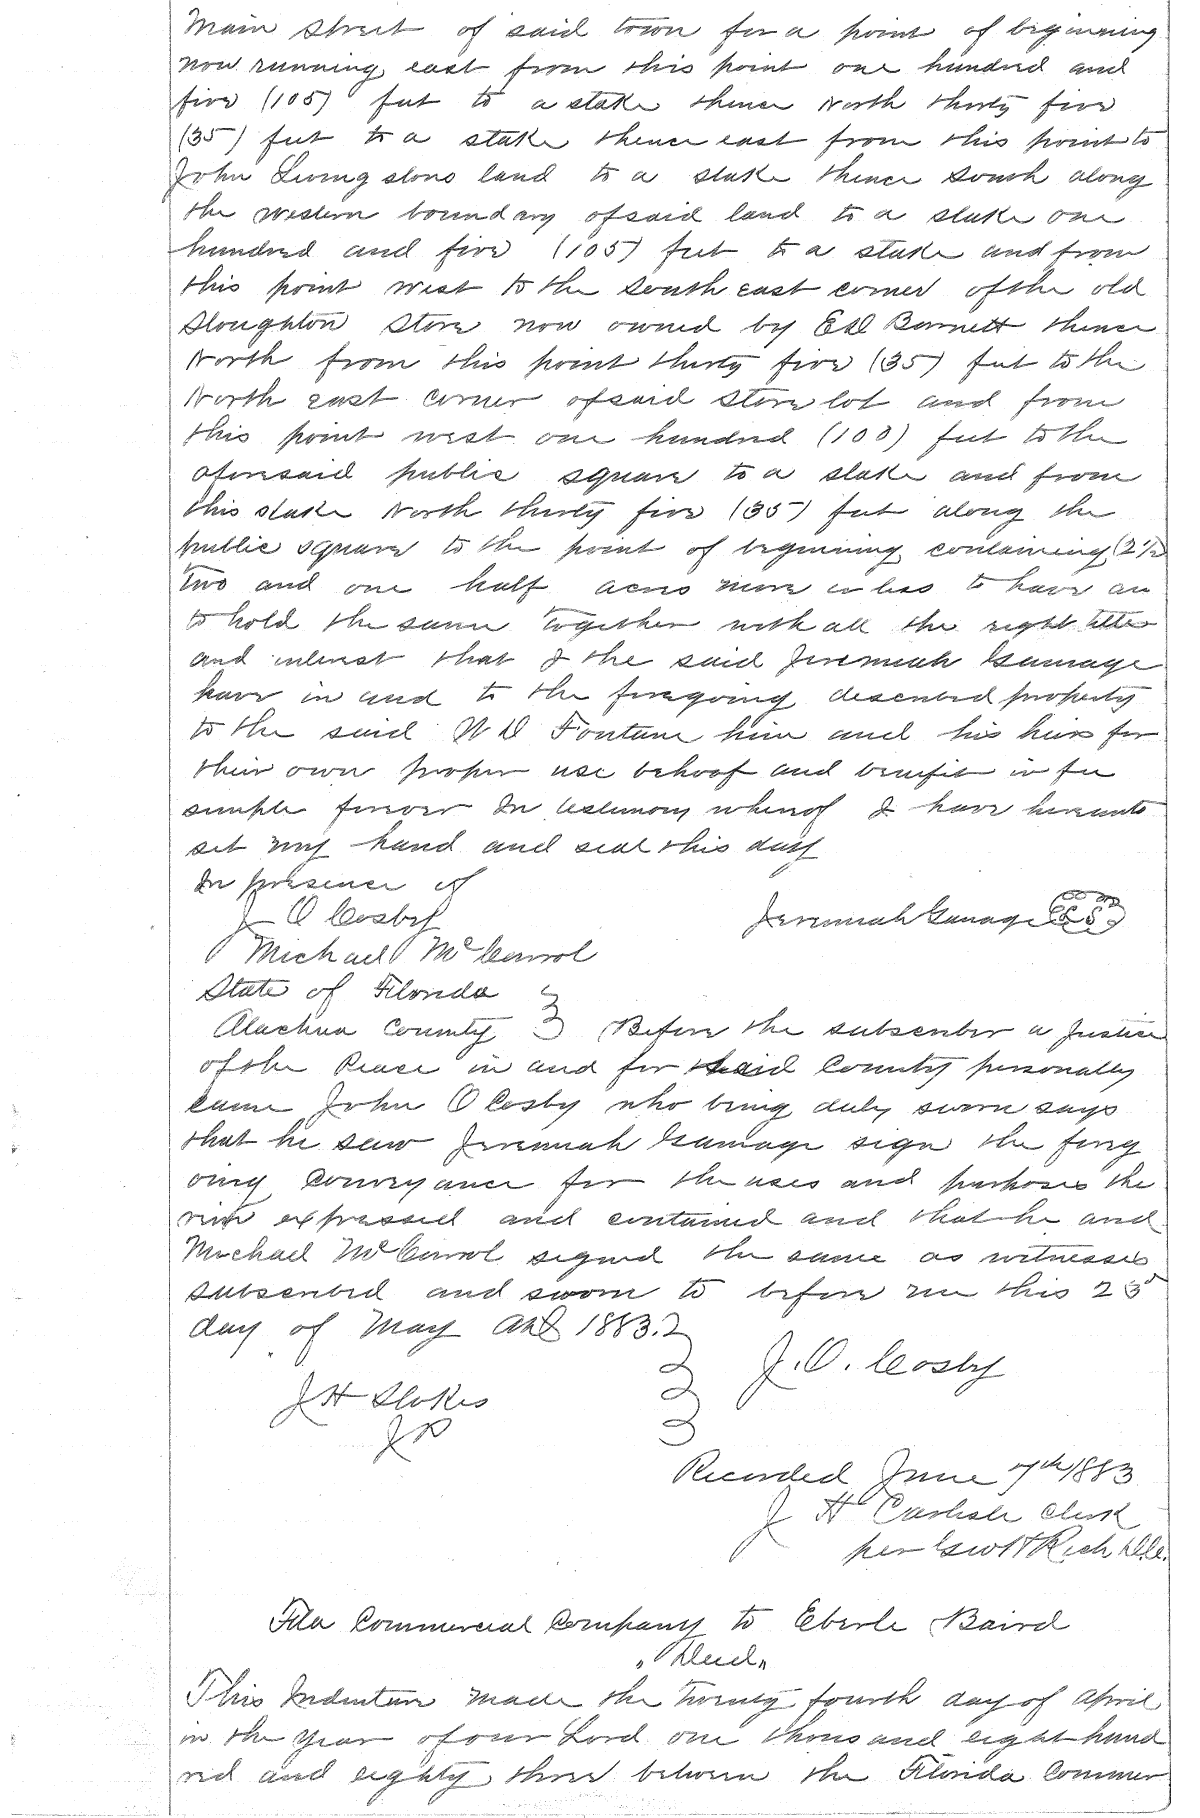 Main Street of said town for a point of beginning
now running east from this point one hundred and
five (105) feet to a stake thence North thirty five
(35) feet to a stake thence east from this point to
John Livingstons land to a stake thence South along
the western boundary of said land to a stake one
hundred and five (105) feet to a stake and from
this point West to the South east corner of the old
Sloughton Store now owned by Ed Barnett thence
North from this point thirty five (35) feet to the
North east corner of said Store lot and from
this point west one hundred (100) feet to the
aforesaid public square to a stake and from
this stake North thirty five (35) feet along the
public square to the point of beginning containing (2 1/2
Two and one half acres more or less to have an
to hold the same together with all the right title
and interest that I the said Jeremiah Gamage
have in and to the foregoing described property
to the said W D Fontane him and his heirs for
their own proper use behoof and benefit in fee
simple forever In testimony whereof I have hereunto
set my hand and seal this day
In presence of
J O Cosby Jeremiah Gamage L S
Michael McCarrol
State of Florida
Alachua County Before the subscriber a Justice
of the Peace in and for said County personally
came John O Cosby who being duly sworn says
that he saw Jeremiah Gamage sign the foreg
oing Conveyance for the uses and purposes the
rein expressed and contained and that he and
Michael McCarrol signed the same as witnesses
subscribed and sworn to before me this 25
day of May AD 1883.
J. O. Cosby
J H Stokes
JP
Recorded June 7th 1883
J H Carlisle Clerk
per Geo H Rich D.C.
Fla Commercial Company to Eberle Baird
"Deed"
This Indenture made the twenty fourth day of April
in the Year of our Lord one thousand eight hund
red and eighty three between the Florida Commer